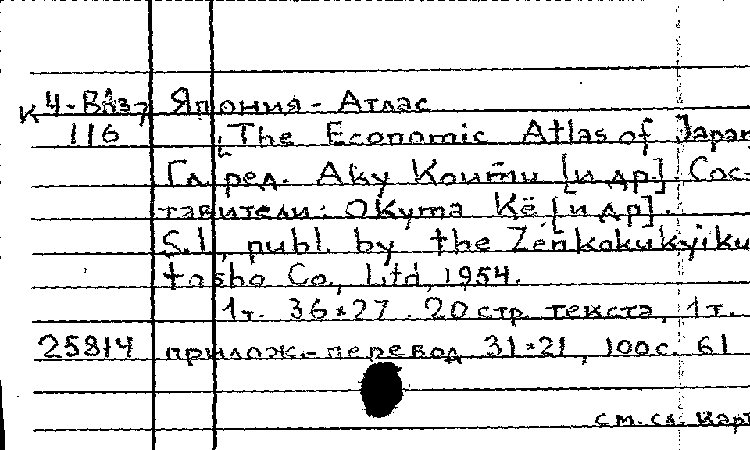 К Ч-ВАз7 Япония - Атлас
116 [The Economic Atlas of Japan
Гл. ред. Аку Коити [и др]. Сос-
тавители: Окута Кё [и др].
S.l., publ. by the Zenkokukyiku
tosho Co., Ltd, 1954.
1т. 36×27. 20 стр. текста, 1т.
25814 прилож.-перевод 31×21, 100с. 61
см. сл. карт